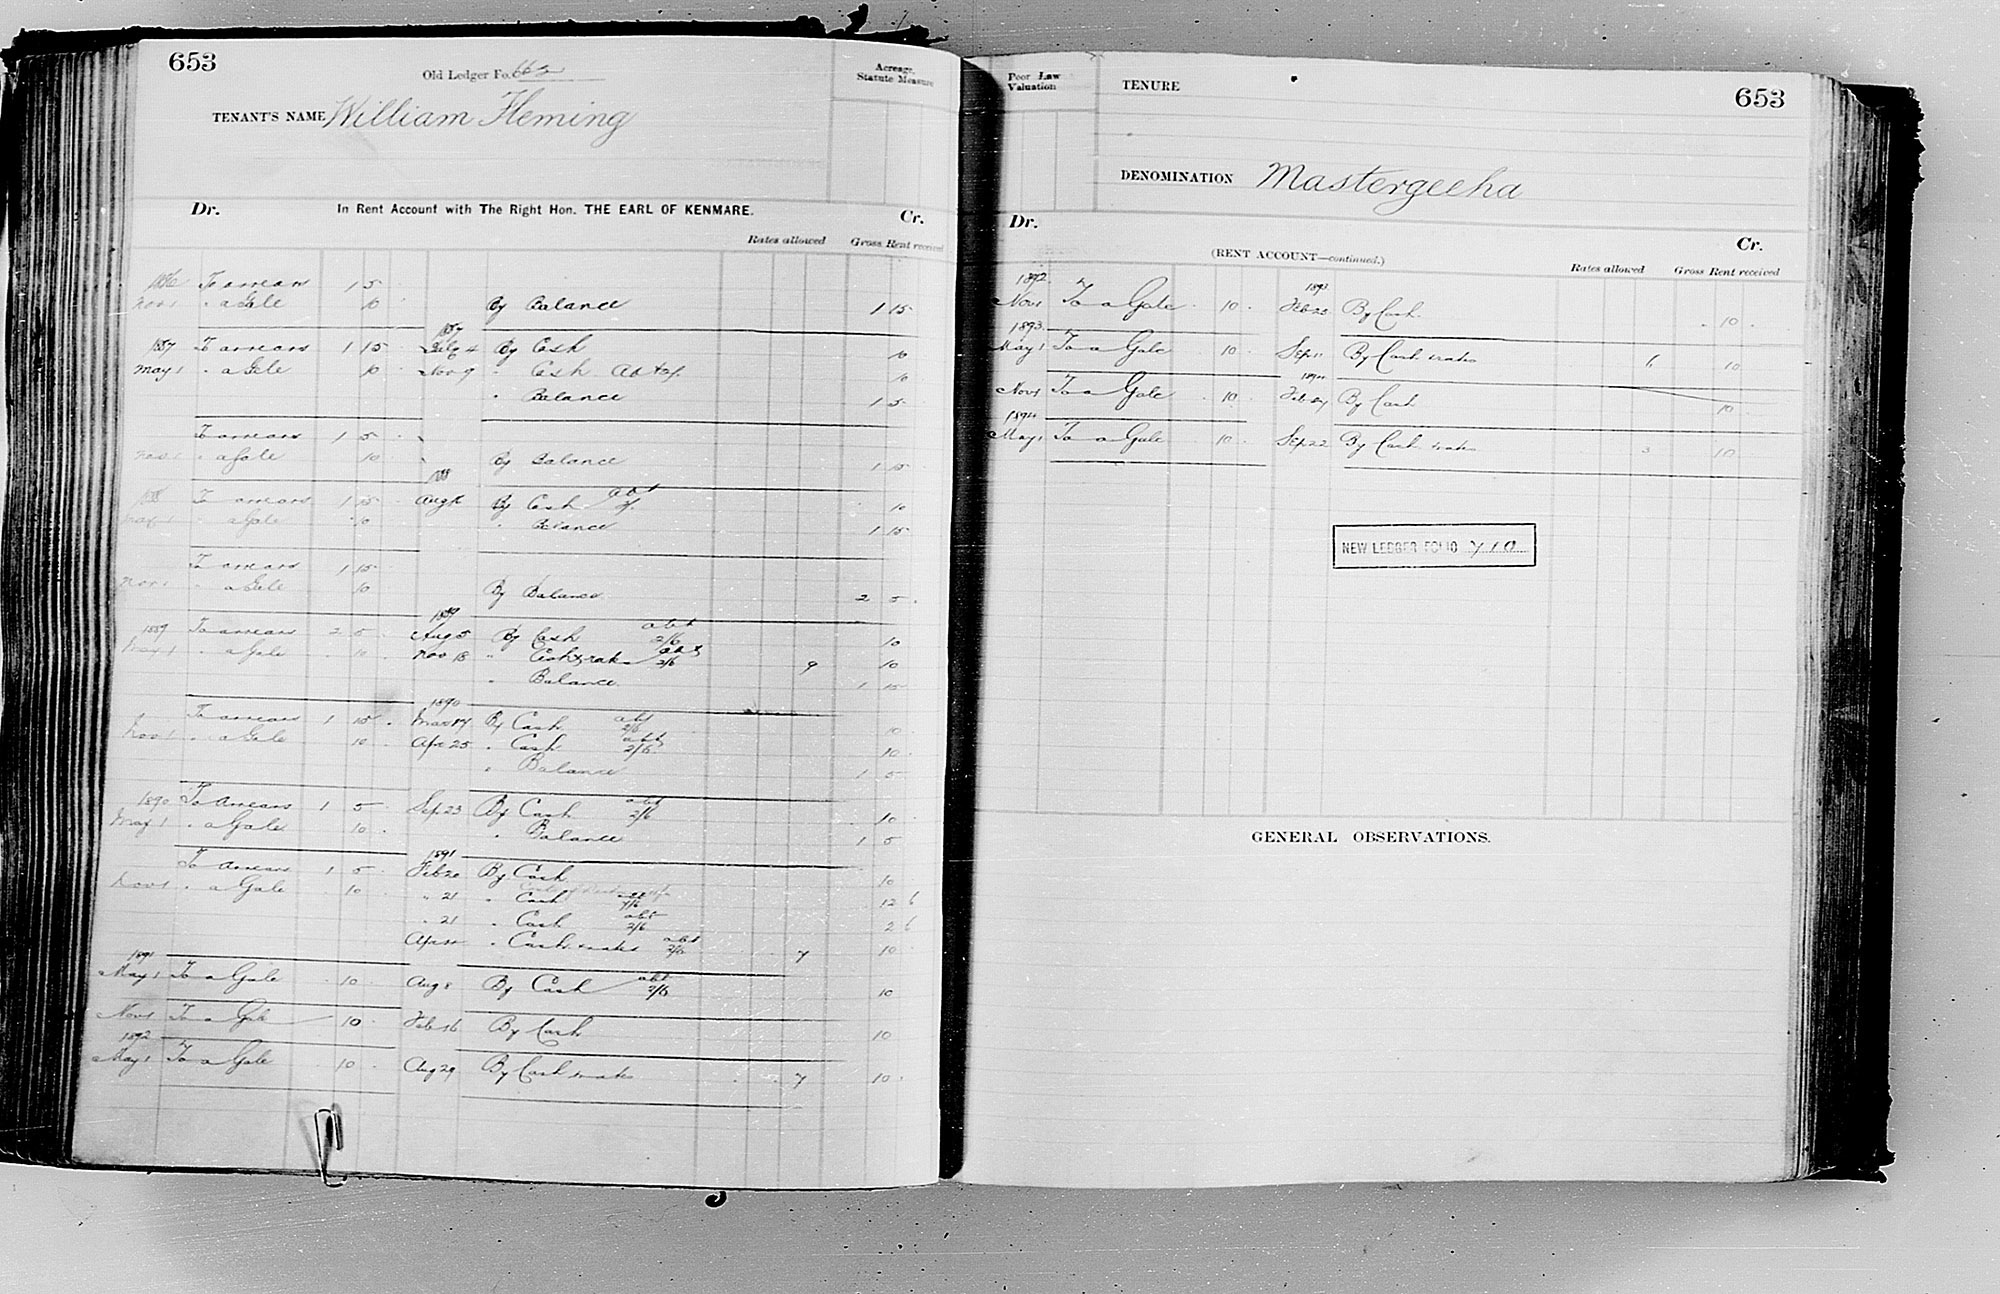 653
Old Ledger Fo.
Acreage, Statute Measure
TENANT'S NAME William Fleming
Dr. In Rent Account with The Right Hon. THE EARL OF KENMARE. Cr.
Rates allowed Gross Rent received
1886 To arrears 1 5
Nov 1 " a Gale 10 By Balance 1 15
1887
1887 To arrears 1 15 4 By Cash 10
May 1 " a Gale 10 Nov 9 " Cash 10
" Balance 1 5
To arrears 1 5
Nov 1 " a Gale 10 By Balance 1 15
1888
1888 To arrears 1 15 Aug By Cash abt 10
May 1 " a Gale 10 " Balance 1 15
To arrears 1 15
Nov 1 " a Gale 10 By Balance 2 5
1889
1889 To arrears 2 5 Aug 5 By Cash abt 2/6 10
May 1 " a Gale 10 Nov 18 " Cash & rates abt 2/6 9 10
" Balance 1 15
1890
To arrears 1 15 Mar 17 By Cash abt 2/6 10
Nov 1 " a Gale 10 Apr 25 " Cash abt 2/6 10
" Balance 1 5
1890 To arrears 1 5 Sep 23 By Cash abt 2/6 10
May 1 " a Gale 10 " Balance 1 5
1891
To arrears 1 5 Feb 20 By Cash 10
Nov 1 " a Gale 10 " 21 " Cash 12 6
" 21 " Cash abt 2/6 2 6
Apr " Cash & rates abt 2/6 7 10
1891
May 1 To a Gale 10 Aug 8 By Cash abt 2/6 10
Nov 1 To a Gale 10 Feb 16 By Cash 10
1892
May 1 To a Gale 10 Aug 29 By Cash & rates 7 10
Poor Law Valuation
TENURE
653
DENOMINATION Mastergeeha
Dr. Cr.
(RENT ACCOUNT—continued.)
Rates allowed Gross Rent received
1892 1893
Nov 1 To a Gale 10 Feb 23 By Cash 10
1893
May 1 To a Gale 10 Sep 11 By Cash & rates 6 10
1894
Nov 1 To a Gale 10 Feb 27 By Cash 10
1894
May 1 To a Gale 10 Sep 22 By Cash & rates 3 10
NEW LEDGER FOLIO 710
GENERAL OBSERVATIONS.